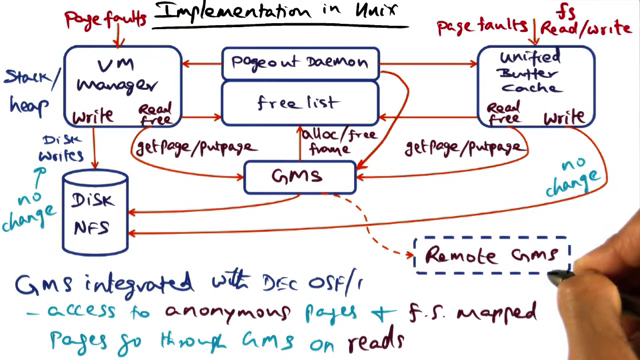 Implementation in Unix
Page faults
Page faults
fs
Read/write
VM
manager
write
Read
free
Stack/
heap
Pageout Daemon
free list
Unified
Buffer
Cache
Read
free
write
Disk
writes
no
change
getpage/putpage
alloc/free
frame
getpage/putpage
no
change
GMS
DISK
NFS
Remote GMS
GMS integrated with DEC OSF/1
- access to anonymous pages + f.s. mapped
pages go through GMS on reads